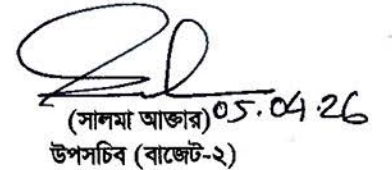 (সালমা আক্তার) 05.04.26
উপসচিব (বাজেট-২)